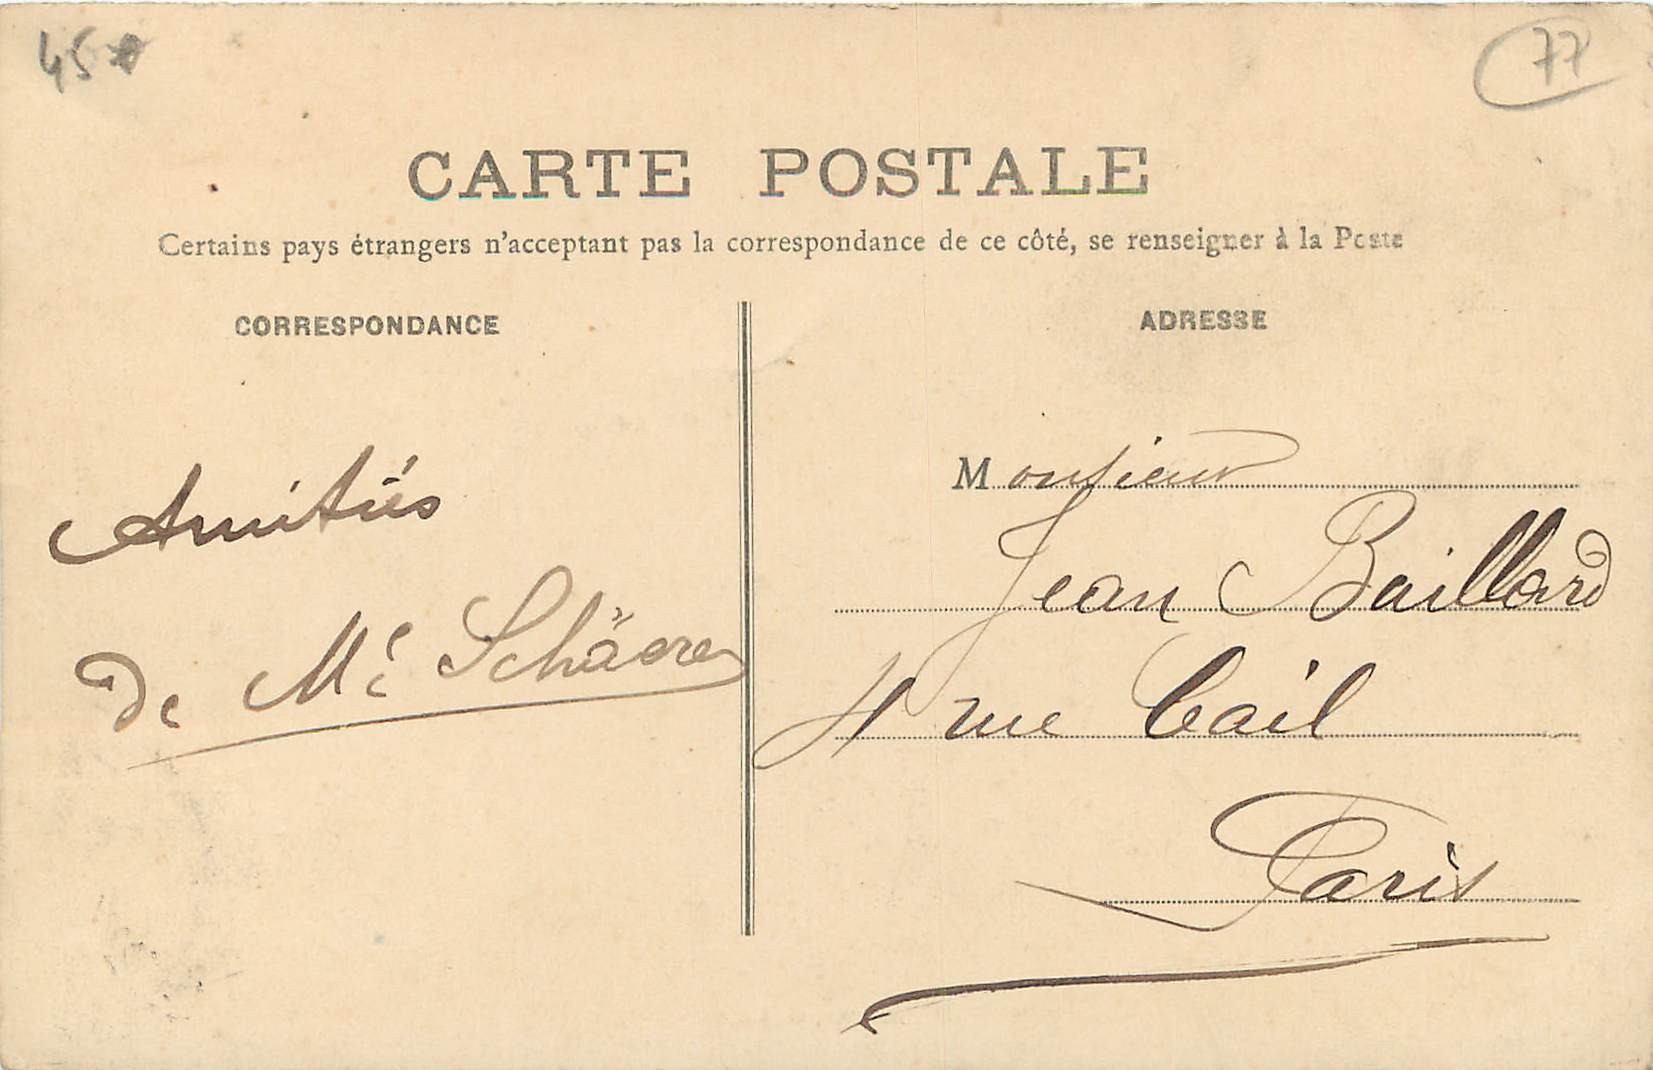 45
77
CARTE POSTALE
Certains pays étrangers n'acceptant pas la correspondance de ce côté, se renseigner à la Poste
CORRESPONDANCE
Amitiés
de
ADRESSE
Monsieur
Jean Baillard
4 rue Cail
Paris